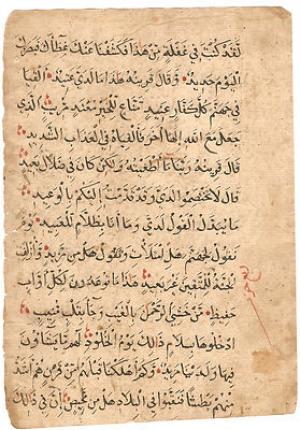 لَقَدْ كُنْتَ فِي غَفْلَةٍ مِنْ هٰذَا فَكَشَفْنَا عَنْكَ غِطَآءَكَ فَبَصَرُكَ
الْيَوْمَ حَدِيدٌ وَقَالَ قَرِينُهُ هٰذَا مَا لَدَيَّ عَتِيدٌ اَلْقِيَا
فِي جَهَنَّمَ كُلَّ كَفَّارٍ عَنِيدٍ مَنَّاعٍ لِلْخَيْرِ مُعْتَدٍ مُرِيبٍ الَّذِي
جَعَلَ مَعَ اللهِ اِلٰهًا آخَرَ فَاَلْقِيَاهُ فِي الْعَذَابِ الشَّدِيدِ
قَالَ قَرِينُهُ رَبَّنَا مَا اَطْغَيْتُهُ وَلٰكِنْ كَانَ فِي ضَلَالٍ بَعِيدٍ
قَالَ لَا تَخْتَصِمُوا لَدَيَّ وَقَدْ قَدَّمْتُ اِلَيْكُمْ بِالْوَعِيدِ
مَا يُبَدَّلُ الْقَوْلُ لَدَيَّ وَمَا اَنَا بِظَلَّامٍ لِلْعَبِيدِ يَوْمَ
نَقُولُ لِجَهَنَّمَ هَلِ امْتَلَاْتِ وَتَقُولُ هَلْ مِنْ مَزِيدٍ وَاُزْلِفَتِ
الْجَنَّةُ لِلْمُتَّقِينَ غَيْرَ بَعِيدٍ هٰذَا مَا تُوعَدُونَ لِكُلِّ اَوَّابٍ
حَفِيظٍ مَنْ خَشِيَ الرَّحْمٰنَ بِالْغَيْبِ وَجَآءَ بِقَلْبٍ مُنِيبٍ
ادْخُلُوهَا بِسَلَامٍ ذٰلِكَ يَوْمُ الْخُلُودِ لَهُمْ مَا يَشَآؤُنَ
فِيهَا وَلَدَيْنَا مَزِيدٌ وَكَمْ اَهْلَكْنَا قَبْلَهُمْ مِنْ قَرْنٍ هُمْ اَشَدُّ
مِنْهُمْ بَطْشًا فَنَقَّبُوا فِي الْبِلَادِ هَلْ مِنْ مَحِيصٍ اِنَّ فِي ذٰلِكَ